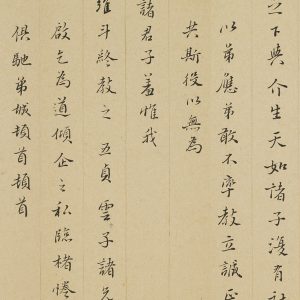 之下與介生天如諸子復有社
以弟應弟敢不率教立誠
共斯役以無為
諸君子羞惟我
維斗終教之五貞雲子諸兄
啟乞為道傾企之私臨楮惓
俱馳弟城頓首頓首